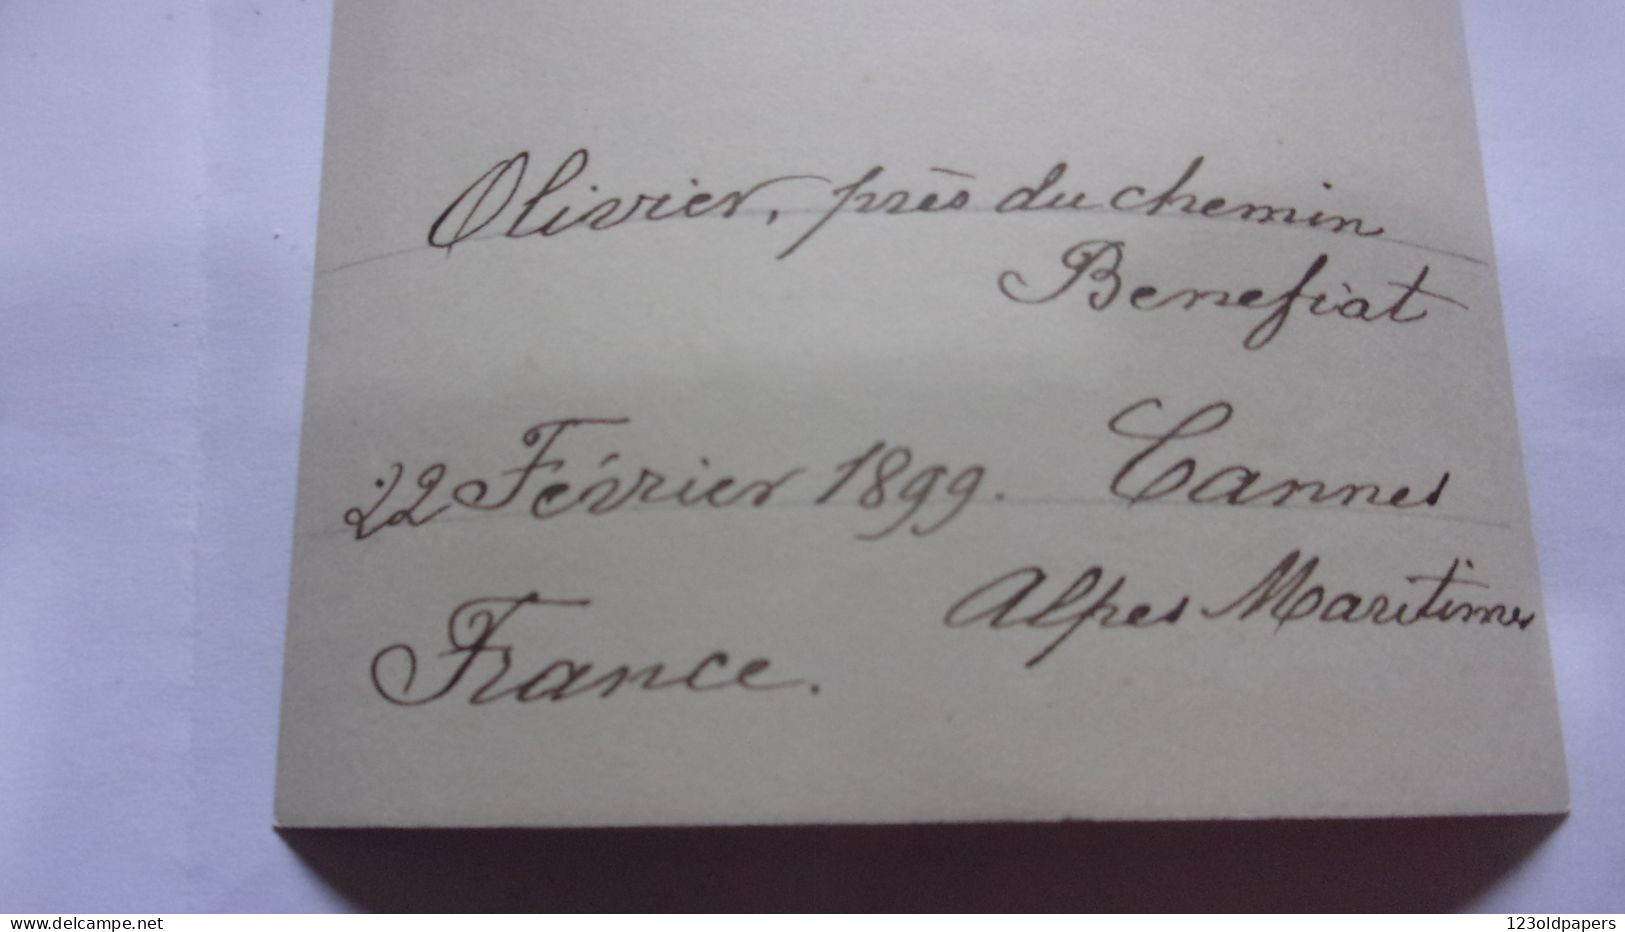 Olivier, près du chemin
Benefiat
22 Février 1899. Cannes
Alpes Maritimes
France.
www.delcampe.net
123oldpapers